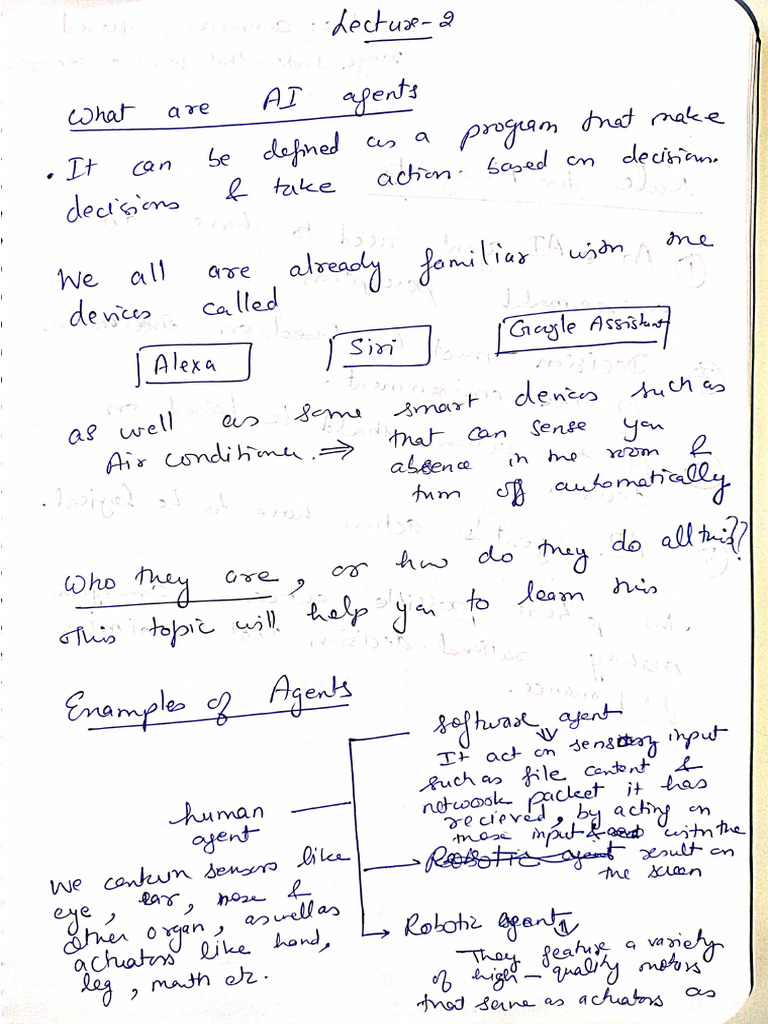 Lecture-2
What are AI agents
• It can be defined as a program that make
decisions & take action. based on decision.
We all are already familiar with the
devices called
Alexa Siri Google Assistant
as well as some smart devices such as
Air conditioner. ⇒ that can sense you
absence in the room &
turn off automatically
Who they are, or how do they do all this??
This topic will help you to learn this
Examples of Agents
software agent
It act on sensory input
such as file content &
network packet it has
recieved, by acting on
those input & with the
result on
the screen
human
agent
We contain sensors like
eye, ear, nose &
other organ, as well as
actuators like hand,
leg, mouth etc.
Robotic agent
They feature a variety
of high-quality motors
that serve as actuators as